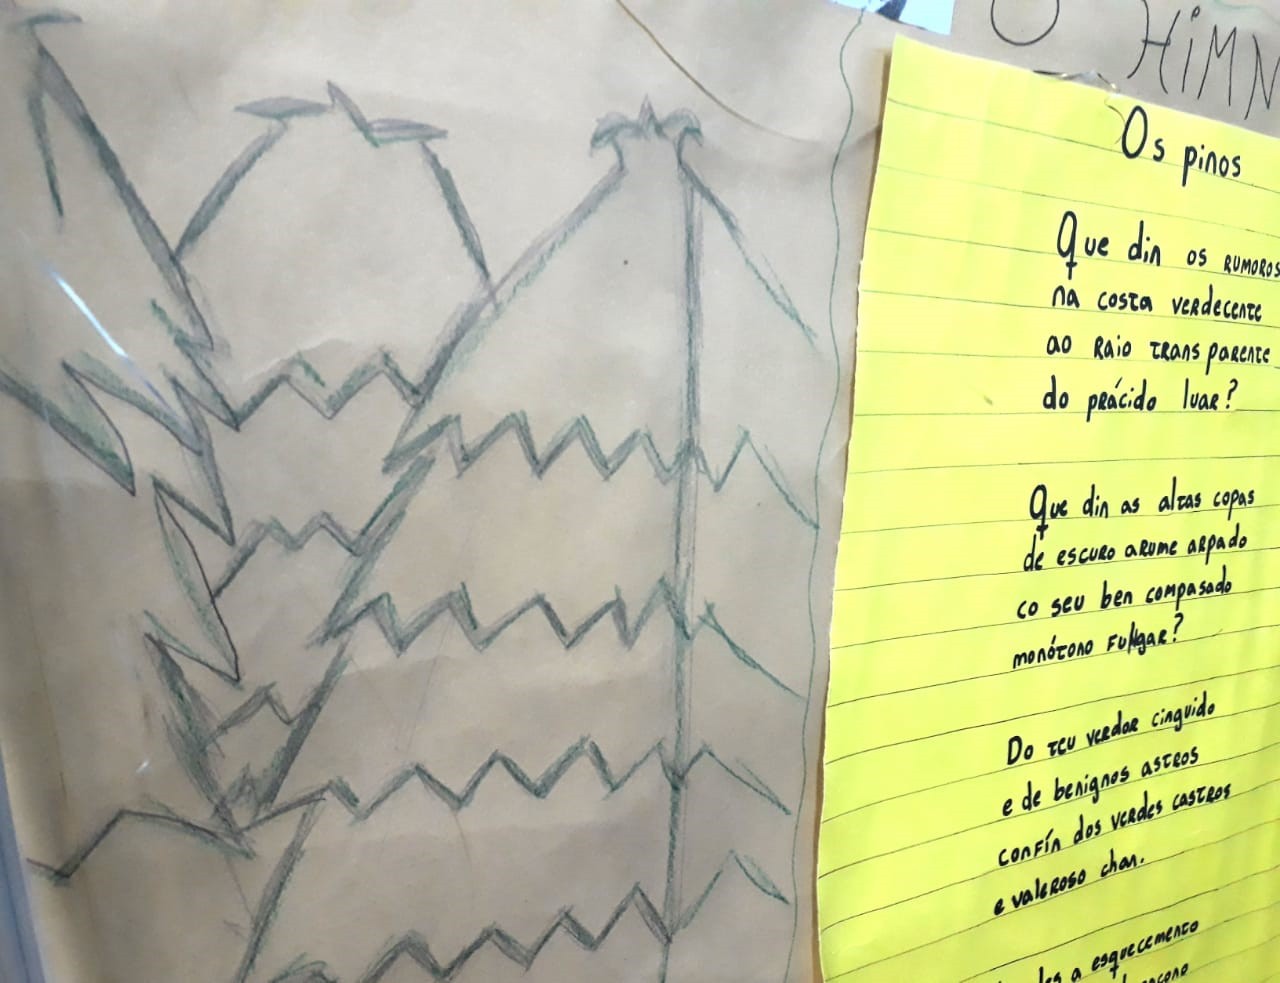 O HIMN
Os pinos
Que din os RUMOROS
na costa verdecente
ao raio transparente
do prácido luar?
Que din as altas copas
de escuro arume arpado
co seu ben compasado
monótono fungar?
Do teu verdor cinguido
e de benignos astros
confín dos verdes castros
e valeroso chan.
a esquecemento